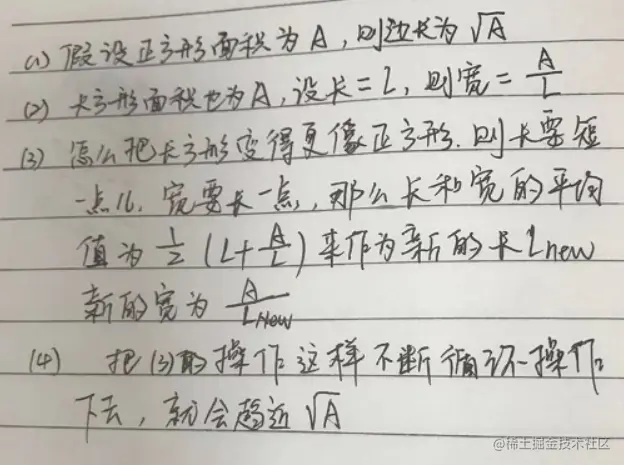 (1) 假设正方形面积为 A,则边长为 √A
(2) 长方形面积也为A,设长=L,则宽=A/L
(3) 怎么把长方形变得更像正方形.则长要短
一点儿.宽要长一点,那么长和宽的平均
值为 1/2 (L+A/L) 来作为新的长Lnew
新的宽为 A/LNew
(4) 把(3)的操作这样不断循环操作
下去,就会趋近 √A
@稀土掘金技术社区